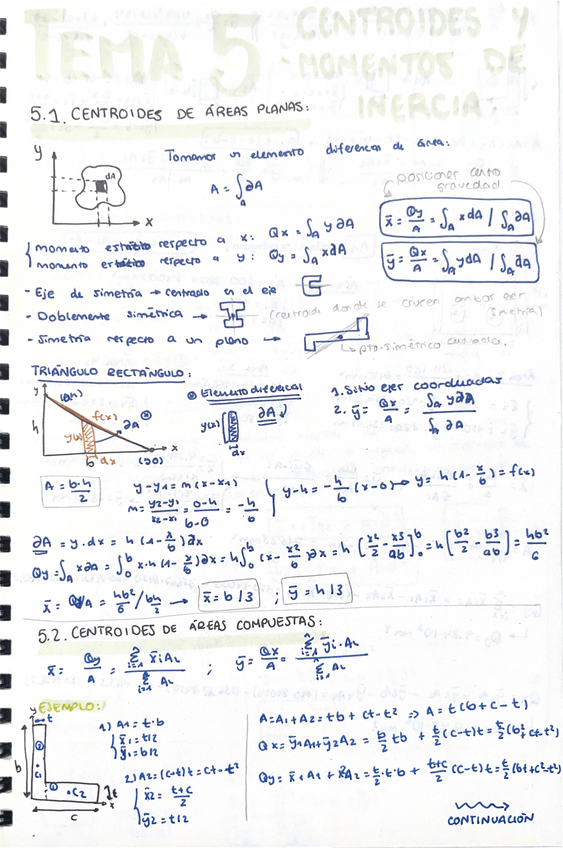 TEMA 5
CENTROIDES Y
MOMENTOS DE
INERCIA
5.1. CENTROIDES DE ÁREAS PLANAS:
Tomamos un elemento diferencia de área:
y
dA
x
A = ∫_A ∂A
posicionar centro
gravedad
x̄ = Qy/A = ∫_A x dA / ∫_A ∂A
ȳ = Qx/A = ∫_A y dA / ∫_A dA
momento estático respecto a x: Qx = ∫_A y ∂A
momento estático respecto a y: Qy = ∫_A x dA
- Eje de simetría → centrado en el eje
- Doblemente simétrica → (centroide donde se crucen ambos ejes
simetría)
- Simetría respecto a un plano →
pto-simétrico
TRIÁNGULO RECTÁNGULO:
y
h
f(x)
y(x)
∂A
b
dx
x
Elemento diferencial
y(x)
∂A
dx
1. Sitúo ejes coordenadas
2. ȳ = Qx/A = ∫_A y∂A / ∫_A ∂A
A = b·h/2
y-y1 = m(x-x1)
m = (y2-y1)/(x2-x1) = (0-h)/(b-0) = -h/b
y-h = -h/b (x-0) → y = h(1-x/b) = f(x)
∂A = y·dx = h(1-x/b)∂x
Qy = ∫_A x∂A = ∫_0^b x·h(1-x/b)∂x = h∫_0^b (x-x²/b)∂x = h[x²/2 - x³/3b]_0^b = h[b²/2 - b³/3b] = hb²/6
x̄ = Qy/A = hb²/6 / bh/2 → x̄ = b/3 ; ȳ = h/3
5.2. CENTROIDES DE ÁREAS COMPUESTAS:
x̄ = Qy/A = Σ x̄i·Ai / Σ Ai ; ȳ = Qx/A = Σ ȳi·Ai / Σ Ai
EJEMPLO:
y
t
b
C1
C2
t
x
c
1) A1 = t·b
x̄1 = t/2
ȳ1 = b/2
2) A2 = (c-t)t = ct-t²
x̄2 = (t+c)/2
ȳ2 = t/2
A = A1+A2 = tb + ct-t² ⇒ A = t(b+c-t)
Qx = ȳ1A1+ȳ2A2 = b/2 tb + t/2 (c-t)t = t/2 (b²+ct-t²)
Qy = x̄1A1 + x̄2A2 = t/2·t·b + (t+c)/2 (c-t)t = t/2 (bt+c²-t²)
CONTINUACIÓN